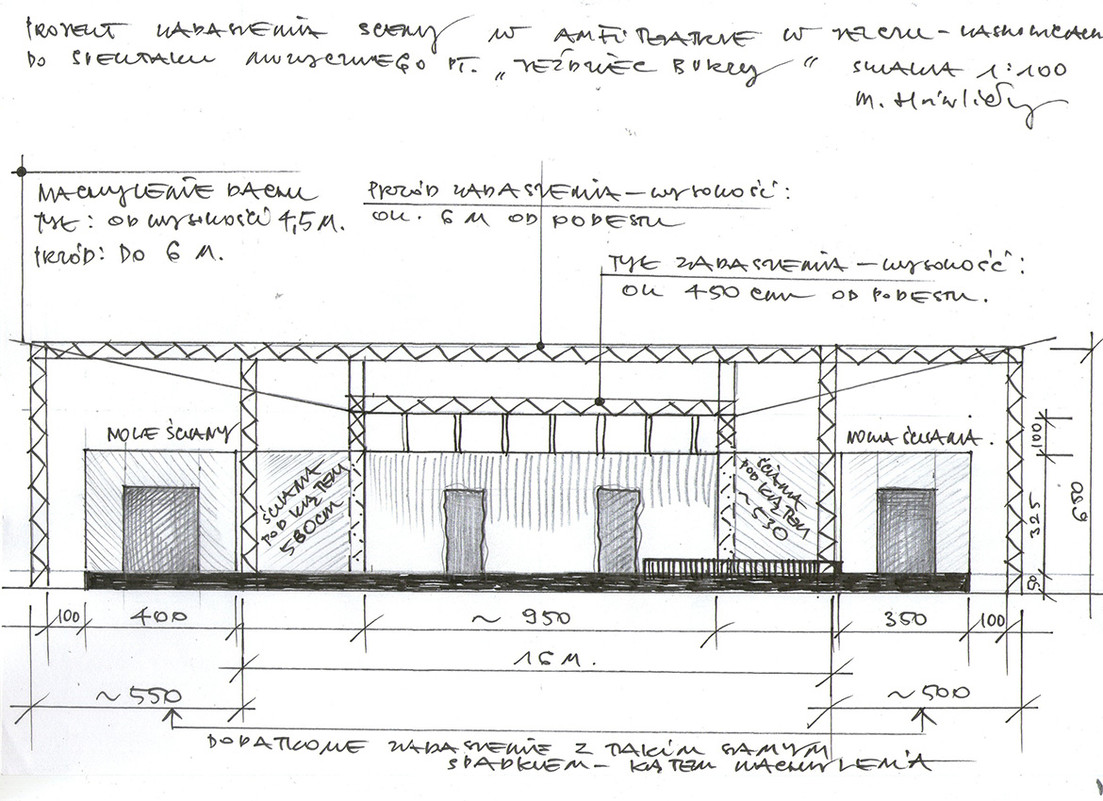 PROJEKT ZADASZENIA SCENY W AMFITEATRZE W JELCZU-LASKOWICACH
DO SPEKTAKLU MUZYCZNEGO PT. „JEŹDZIEC BURZY” SKALA 1:100
M.
NACHYLENIE DACHU
TYŁ: OD WYSOKOŚCI 4,5 M.
PRZÓD: DO 6 M.
PRZÓD ZADASZENIA – WYSOKOŚĆ:
OK. 6 M OD PODESTU
TYŁ ZADASZENIA – WYSOKOŚĆ:
OK 450 cm OD PODESTU.
NOWE ŚCIANY
NOWA ŚCIANA.
ŚCIANA
POD KĄTEM
580CM
ŚCIANA
POD KĄTEM
~530
100
325
50
650
100
400
~ 950
350
100
16 M.
~550
~500
DODATKOWE ZADASZENIE Z TAKIM SAMYM
SPADKIEM – KĄTEM NACHYLENIA